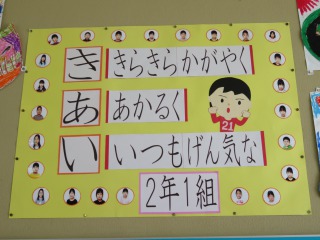 き きらきらかがやく
あ あかるく
い いつもげん気な
21
2年1組